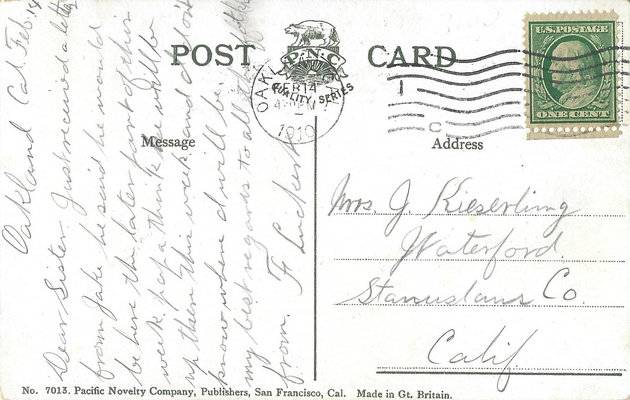 POST CARD
P·N·C
QUALITY SERIES
OAKLAND CAL.
FEB 14
430 PM
1910
U.S. POSTAGE
ONE CENT
1
C
Message
Address
Oakland Cal Feb. 14
Dear Sister. Just received a letter
from Jake he said he would
be here the later part of this
week. papa think he will be
up then this week and I don't
know where I will be
my best regards to all of the
from. F
Mrs. J. Kieserling
Waterford.
Stanuslaus Co.
Calif
No. 7013. Pacific Novelty Company, Publishers, San Francisco, Cal. Made in Gt. Britain.